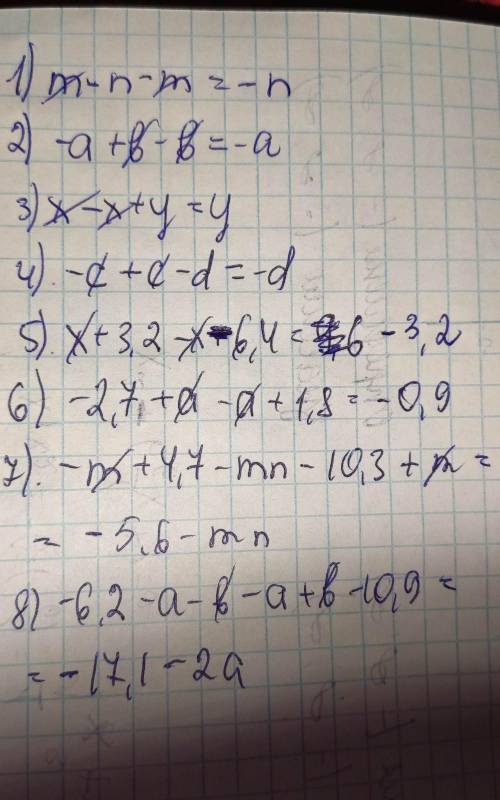 1) m - n - m = - n
2) -a + b - b = -a
3) x - x + y = y
4). -c + c - d = -d
5). x + 3,2 - x - 6,4 = 6 - 3,2
6) -2,7 + a - a + 1,8 = -0,9
7). -m + 4,7 - mn - 10,3 + m =
= -5,6 - mn
8) -6,2 - a - b - a + b - 10,9 =
= -17,1 - 2a